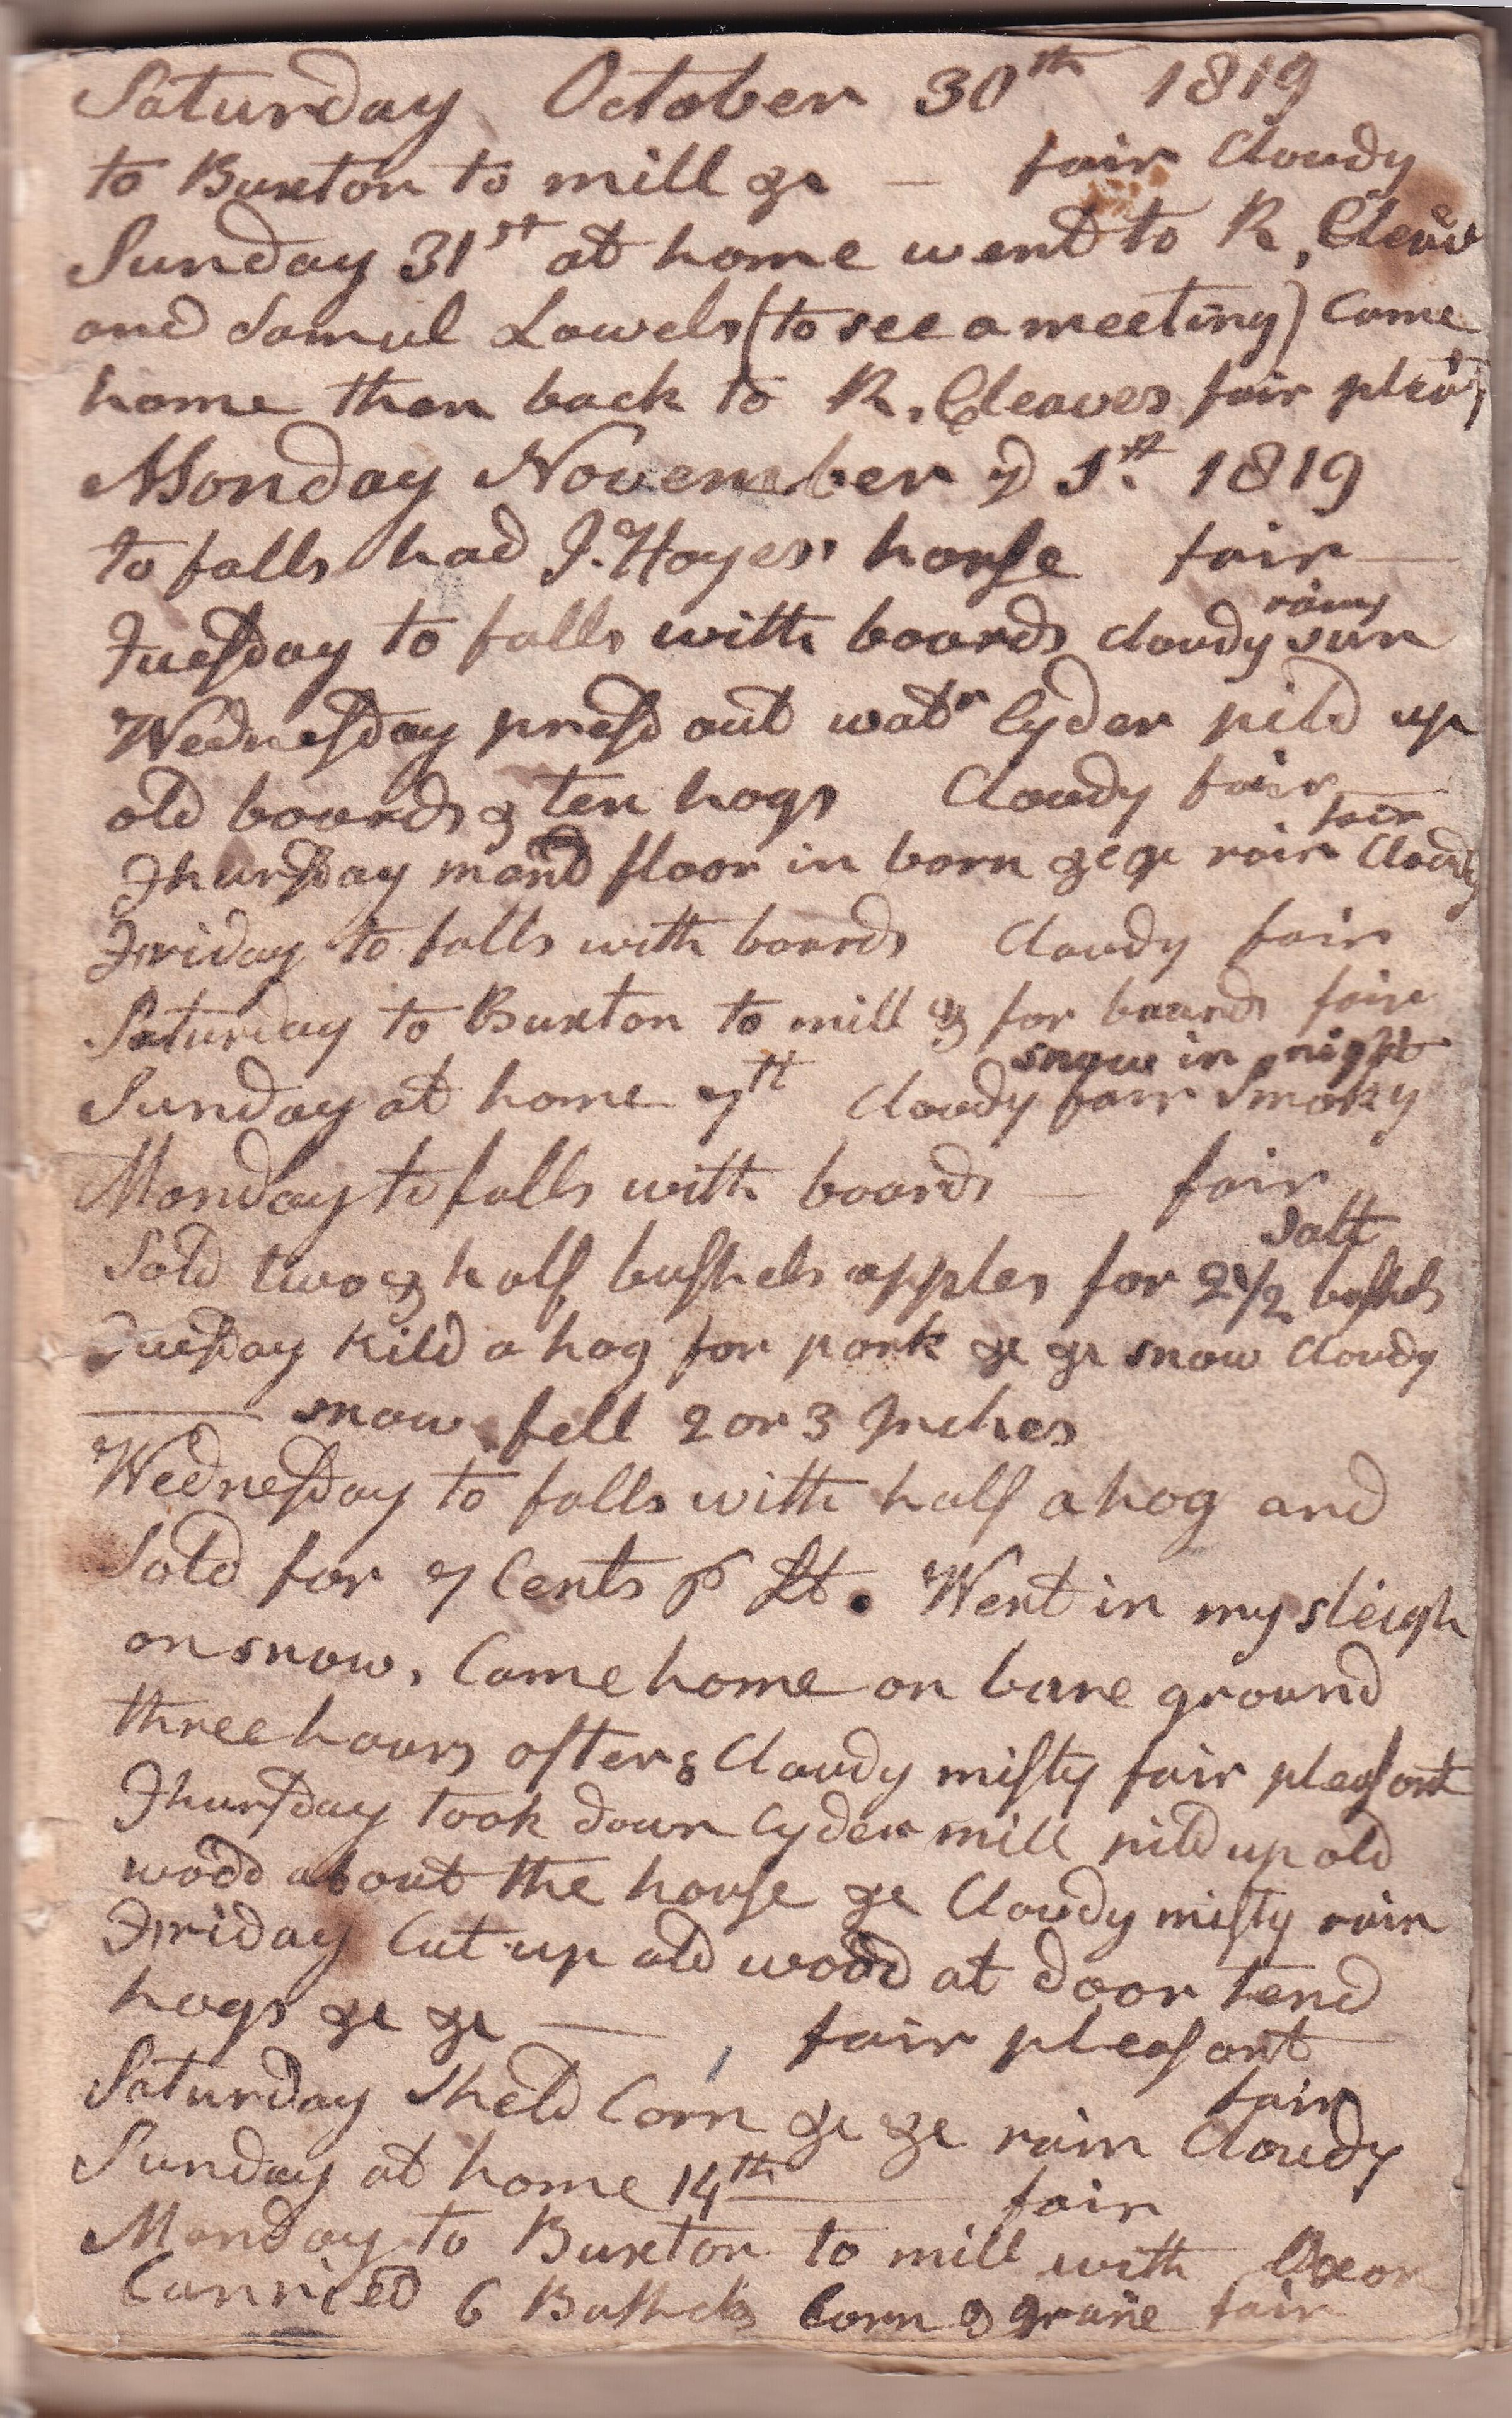 Saturday October 30th 1819
to Buxton to mill &c — fair Cloudy
Sunday 31st at home went to R. Cleav
and Samuel Lowels (to see a meeting) Came
home then back to R. Cleaves fair pleas
Monday November ye 1st. 1819
to falls had J. Hayes' horse fair —
rainy
Tuesday to falls with boards Cloudy sun
Wednesday presd out watr Cyder pild up
old boards & ten hogs Cloudy fair
fair
Thursday mend floor in barn &c &c rain Cloudy
Friday to falls with boards Cloudy fair
Saturday to Buxton to mill & for boards fair
snow in night
Sunday at home 7th Cloudy fair Smoky
Monday to falls with boards — fair
Salt
Sold two & half bushels apples for 2 1/2 bushels
Tuesday kild a hog for pork &c &c snow Cloudy
— snow fell 2 or 3 Inches
Wednesday to falls with half a hog and
Sold for 7 Cents ⅌ lb. Went in my sleigh
on snow. Came home on bare ground
three hours after & Cloudy misty fair pleasant
Thursday took down Cyder mill pild up old
wood about the house &c Cloudy misty rain
Friday Cut up old wood at door tend
hogs &c &c — fair pleasant
fair
Saturday Sheld Corn &c &c rain Cloudy
Sunday at home 14th — fair
Monday to Buxton to mill with Oxen
Carried 6 Bushels Corn & graine fair